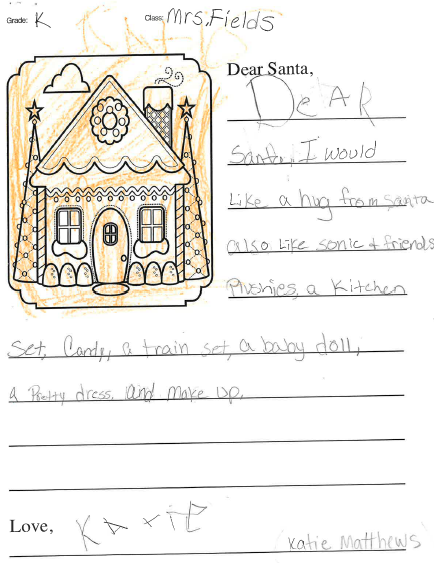 Grade: K Class: Mrs. Fields
Dear Santa,
DeAR
Santa, I would
Like a hug from santa
also Like sonic + friends
Plushies, a Kitchen
Set, Candy, a train set, a baby doll,
a Pretty dress, and make up.
Love, KAtiE
Katie Matthews